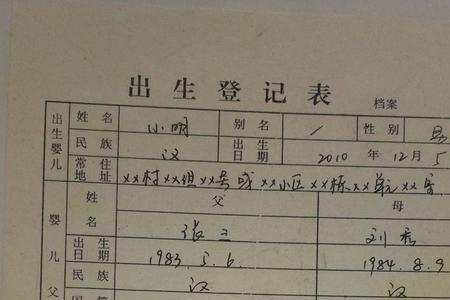 出生登记表
档案
出生婴儿 姓名 小明 别名 / 性别 男
民族 汉 出生日期 2010 年 12 月 5
常住地址 ××村××组××号或××小区××栋××单元××号
婴儿父 姓名 父 母
张三 刘香
出生日期 1983 5.6. 1984.8.9
民族 汉 汉